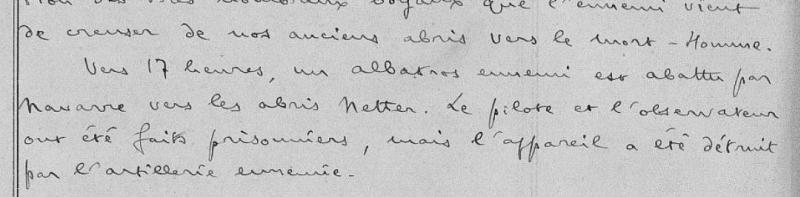 des très nombreux boyaux que l'ennemi vient
de creuser de nos anciens abris vers le Mort-Homme.
Vers 17 heures, un albatros ennemi est abattu par
Navarre vers les abris Netter. Le pilote et l'observateur
ont été faits prisonniers, mais l'appareil a été détruit
par l'artillerie ennemie.